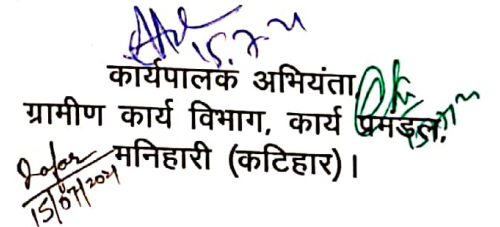 15.7.21
कार्यपालक अभियंता,
ग्रामीण कार्य विभाग, कार्य प्रमंडल,
मनिहारी (कटिहार)।
15/07/2021